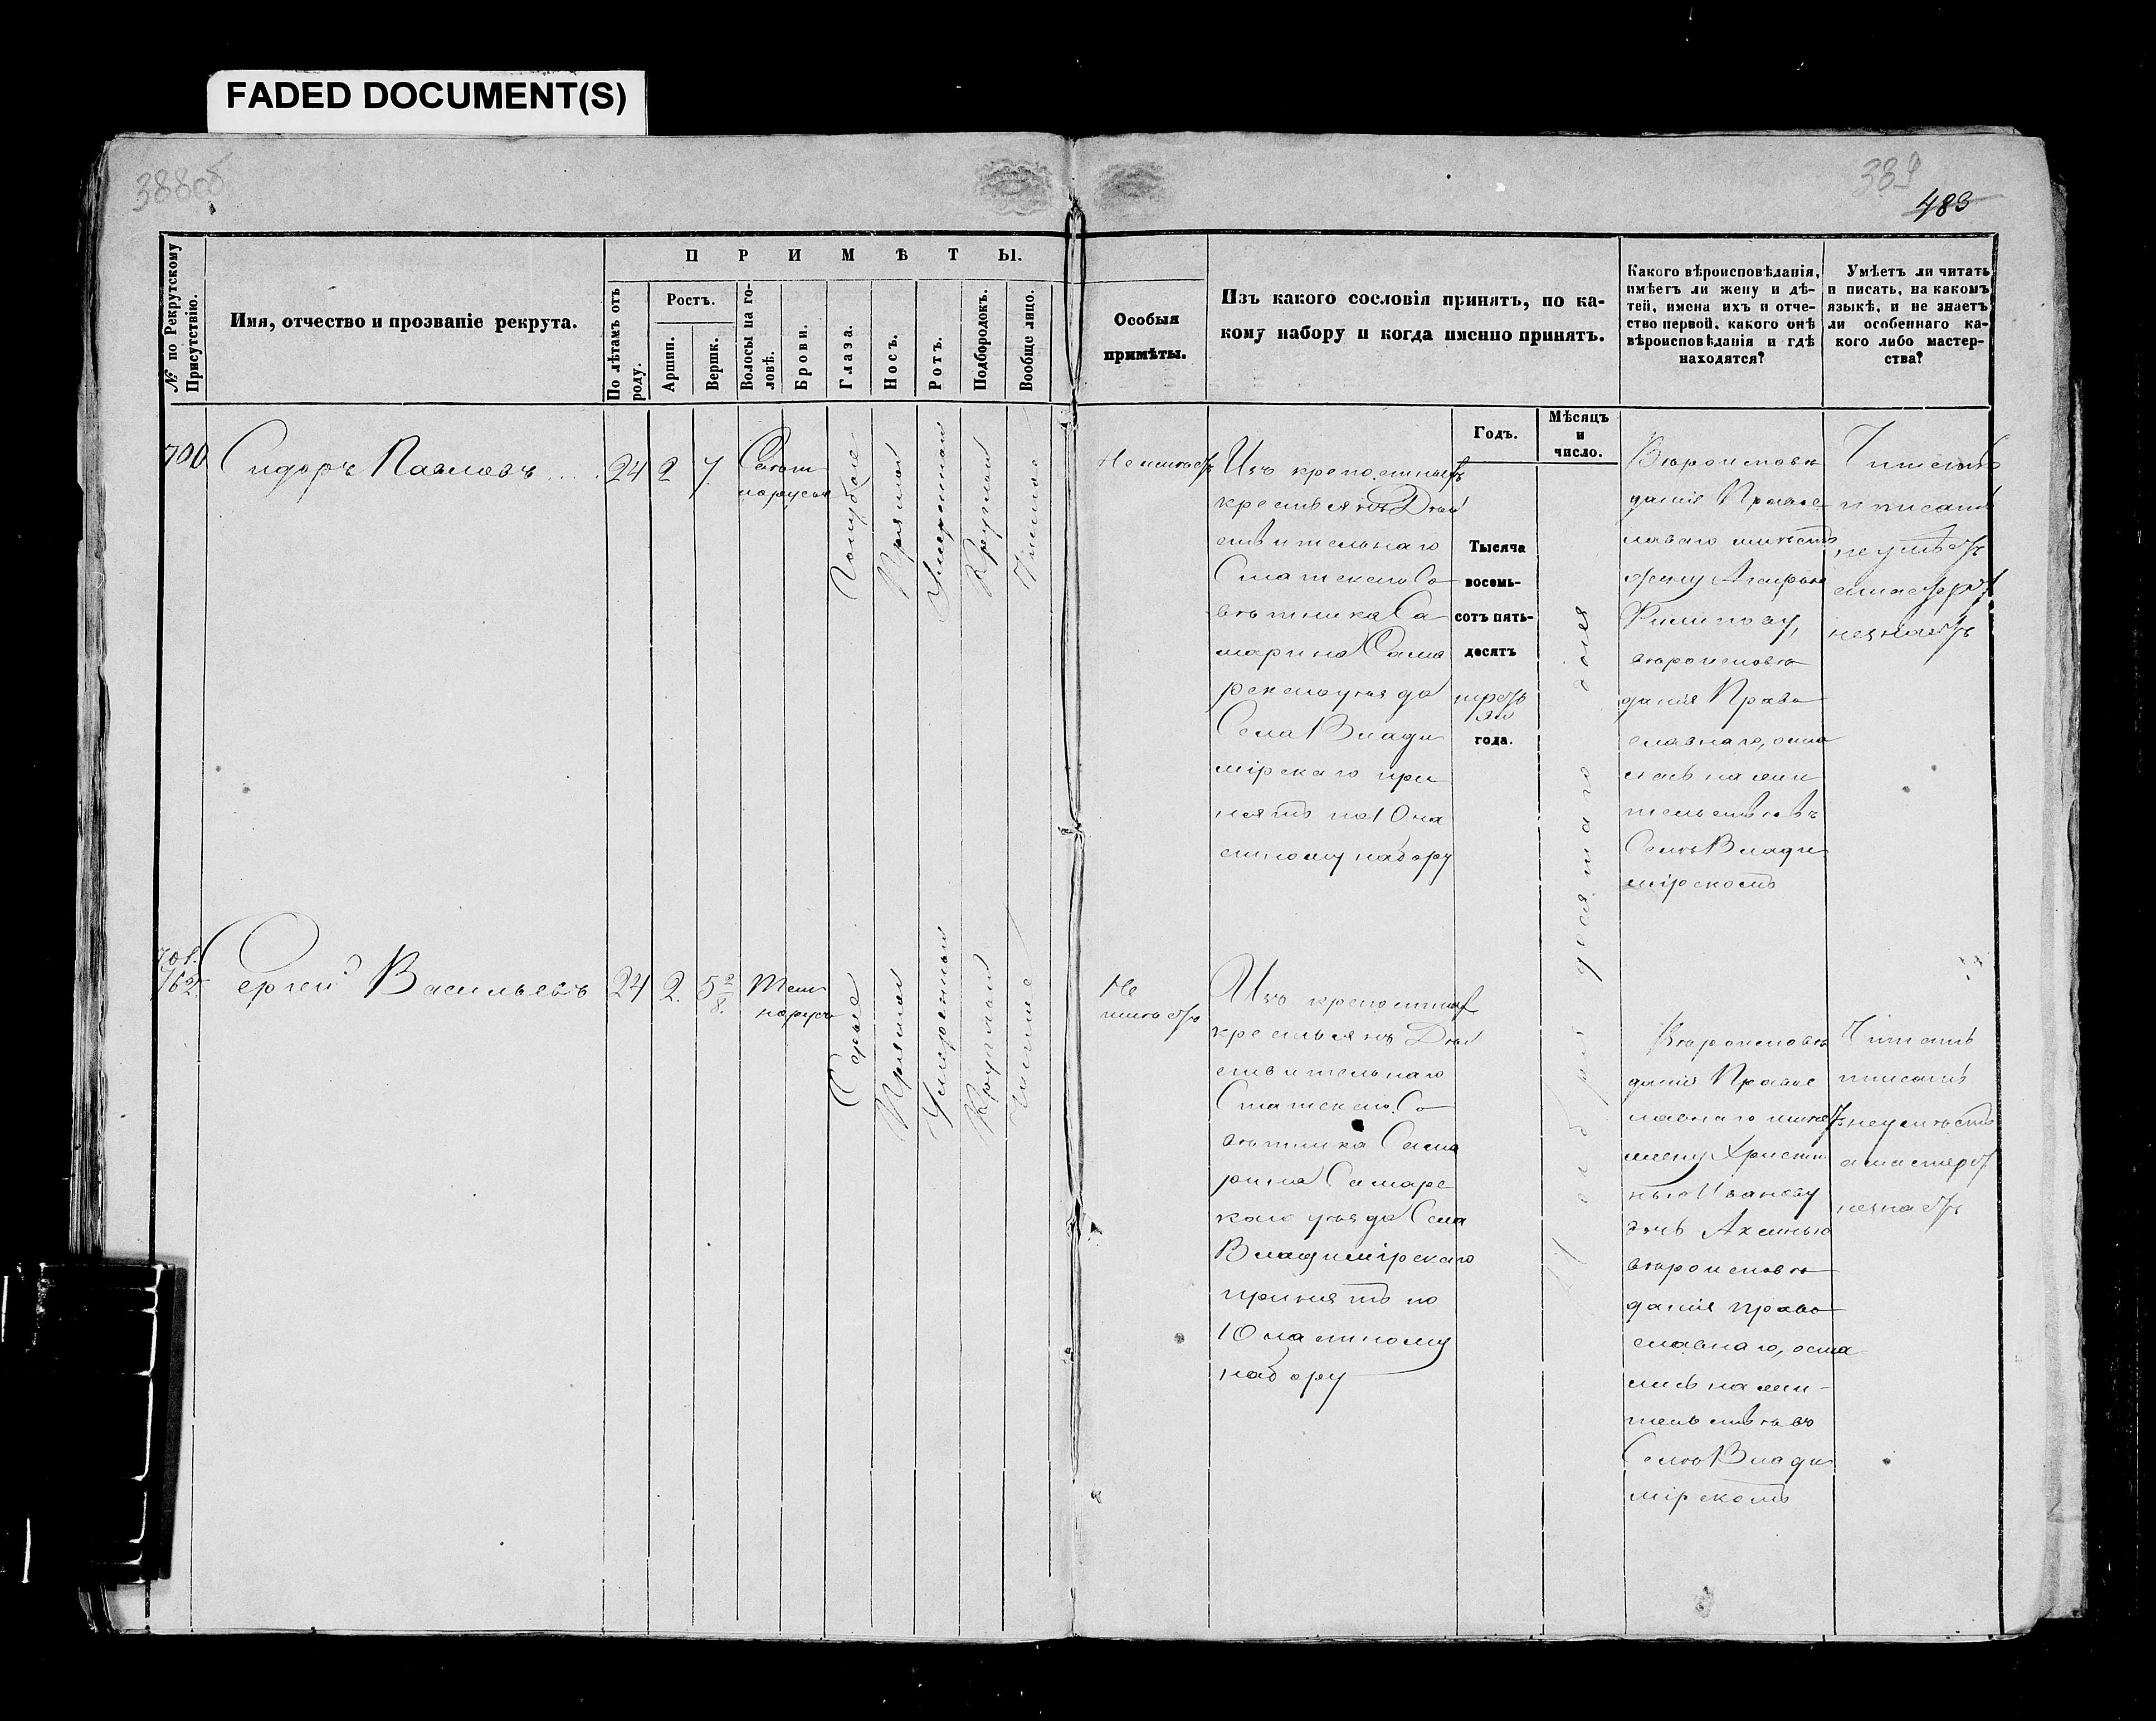 FADED DOCUMENT(S)
388об
389
483
№ по Рекрутскому Присутствію.
Имя, отчество и прозваніе рекрута.
ПРИМѢТЫ.
По лѣтамъ отъ роду.
Ростъ.
Аршин.
Вершк.
Волосы на головѣ.
Брови.
Глаза.
Носъ.
Ротъ.
Подбородокъ.
Вообще лицо.
Особыя
примѣты.
Изъ какого сословія принятъ, по ка-
кому набору и когда именно принятъ.
Годъ.
Мѣсяцъ
и
число.
Какого вѣроисповѣданія,
имѣетъ ли жену и дѣ-
тей, имена ихъ и отче-
ство первой, какого онѣ
вѣроисповѣданія и гдѣ
находятся?
Умѣетъ ли читать
и писать, на какомъ
языкѣ, и не знаетъ
ли особеннаго ка-
кого либо мастер-
ства?
700
Сидоръ Павловъ
24
2
7
Светло
русые
Голубые
Прямой
Умеренной
Круглой
Чистое
Не имѣетъ
Изъ крепостныхъ
крестьянъ Дѣй
ствительнаго
Статскаго Со
вѣтника Са
марина Сама
рскаго уѣзда
Села Влади
мірскаго при
нятъ по 10 ча
стному набору
Тысяча
восемь-
сотъ пять-
десятъ
третьяго
года.
Вѣроисповѣ
данія Правос
лаваго имѣетъ
жену
вѣроисповѣ
данія Право
славнаго, оста
лась на жи
тельствѣ въ
Селѣ Влади
мірскомъ
Читать
и писать
неумѣетъ
мастерст.
незнаетъ
701.
762.
Сергей Васильевъ
24
2.
5 2/8.
Темно
русые
Серые
Прямой
Умеренный
Круглой
Чистое
Не
имѣетъ
Изъ крепостных
крестьянъ Дѣй
ствительнаго
Статскаго Со
вѣтника Сама
рина Самарс
каго уѣзда Села
Владимірскаго
принятъ по
10 частному
набору
Вѣроисповѣ
данія Правос
лавнаго имѣе
жену Христи
нью Иванову
дочь Аксинью
вѣроисповѣ
данія право
славнаго, оста
лись на жи-
тельствѣ въ
Селѣ Влади
мірскомъ
Читать
писать
неумѣетъ
а мастерст
незнаетъ